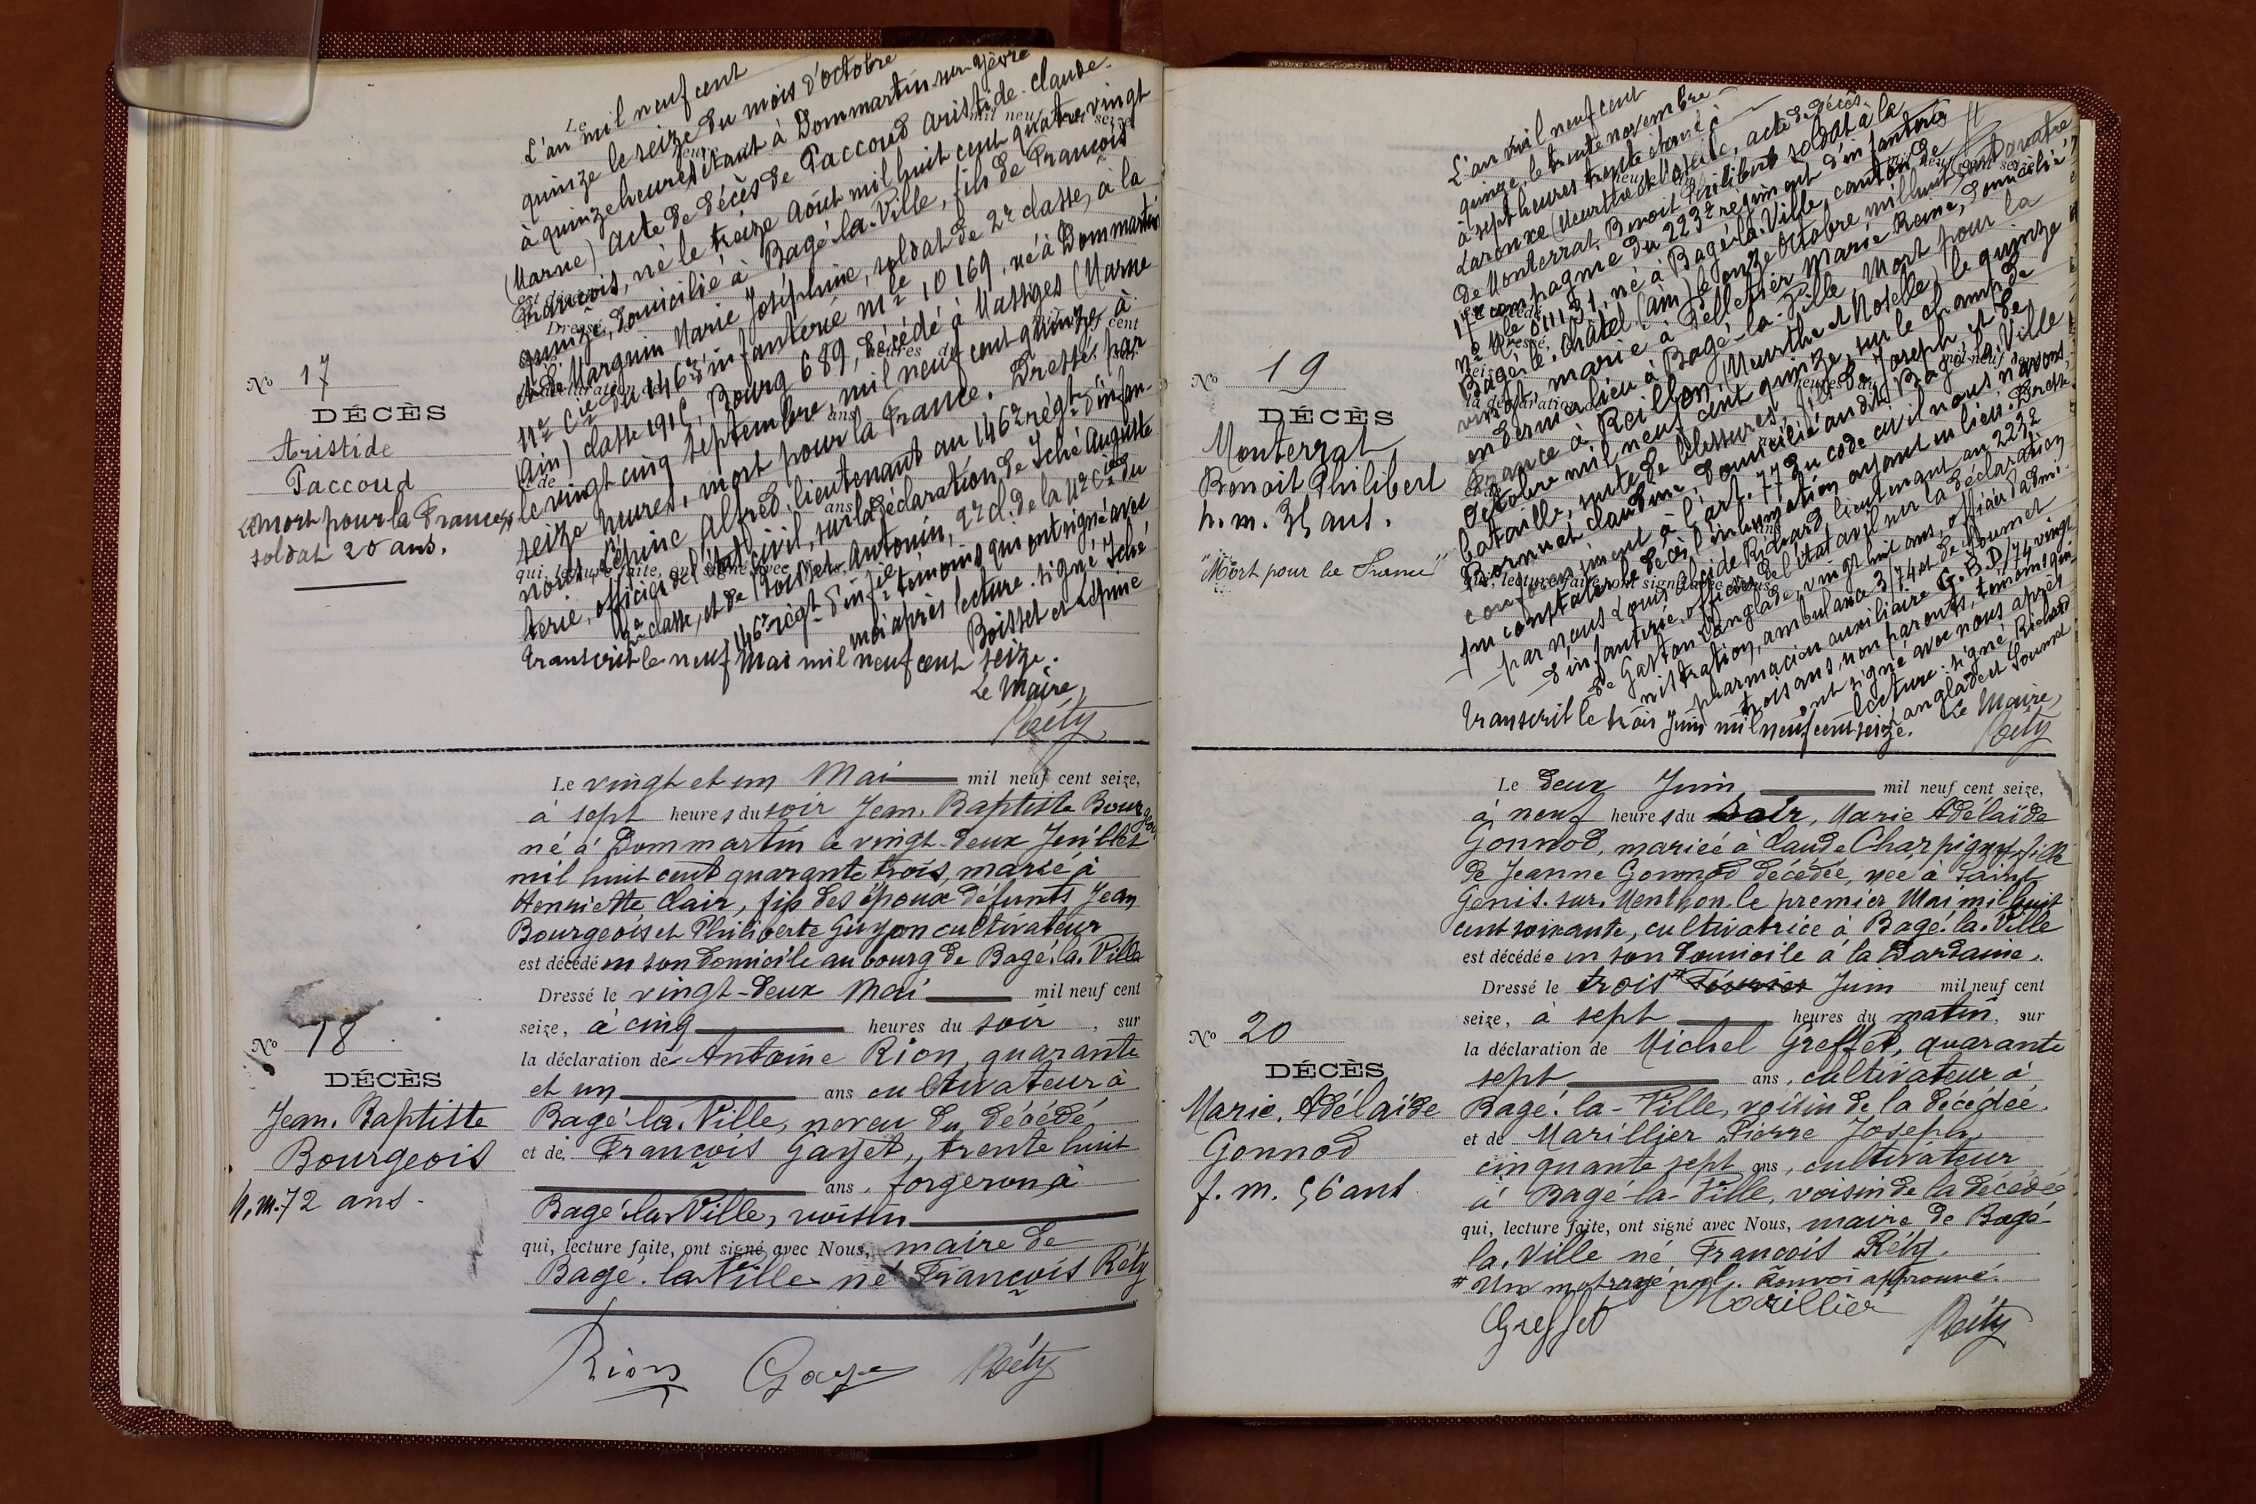 L'an mil neuf cent
quinze le seize du mois d'octobre
à quinze heures étant à Dommartin-sur-Yèvre
(Marne) acte de décès de Paccoud Aristide-Claude-
François, né le treize Août mil huit cent quatre vingt
quinze, domicilié à Bagé-la-Ville, fils de François
et de Marguin Marie Joséphine, soldat de 2e classe, à la
11e Cie du 146e d'infanterie Mle 10169, né à Dommartin
(Ain) classe 1915, Bourg 689, décédé à Massiges (Marne
le vingt cinq septembre, mil neuf cent quinze, à
seize heures, mort pour la France. Dressé, par
nous, Lépine Alfred, lieutenant au 146e régt d'infan-
terie, officier de l'état civil, sur la déclaration de Iché Auguste
2e classe, et de Boisset Antonin, 2e cl. de la 11e Cie du
146e régt d'infie témoins qui ont signé avec
moi après lecture. signé Iché
Boisset et Lépine
Transcrit le neuf Mai mil neuf cent seize.
Le Maire,
Réty
No 17
DÉCÈS
Aristide
Paccoud
"Mort pour la France"
soldat 20 ans.
Le vingt et un Mai mil neuf cent seize,
à sept heures du soir Jean-Baptiste Bourgeois
né à Dommartin le vingt-deux Juillet
mil huit cent quarante trois, marié à
Henriette Clair, fils des époux défunts Jean
Bourgeois et Philiberte Guyon cultivateur
est décédé en son domicile au bourg de Bagé-la-Ville
Dressé le vingt-deux Mai mil neuf cent
seize, à cinq heures du soir, sur
la déclaration de Antoine Rion, quarante
et un ans cultivateur à
Bagé-la-Ville, neveu du décédé
et de François Gayet, trente huit
ans, forgeron à
Bagé-la-Ville, voisin
qui, lecture faite, ont signé avec Nous, maire de
Bagé-la-Ville né François Réty
Rion Gaye Réty
No 18
DÉCÈS
Jean-Baptiste
Bourgeois
h. m. 72 ans.
L'an mil neuf cent
quinze, le trente novembre
à sept heures trente étant à
Laronxe (Meurthe et Moselle, acte de décès
de Monterrat Benoit Philibert soldat à la
17e compagnie du 223e régiment d'infanterie
né à Bagé-la-Ville, canton de
Bagé-le-Châtel (Ain) le onze Octobre mil huit cent quatre
vingt, marié à Pelletier Marie Reine, domicilié
en dernier lieu à Bagé-la-Ville, Mort pour la
France à Reillon (Meurthe et Moselle) le quinze
Octobre mil neuf cent quinze, sur le champ de
bataille, suite de blessures, fils de Joseph et de
Bornuet Claudine, domicilié audit Bagé-la-Ville
conformément à l'art. 77 du code civil nous n'avons
pu constater le décès l'inhumation ayant eu lieu. Dressé
par nous Louis Richard, lieutenant au 223e
d'infanterie, officier de l'état civil sur la déclaration
de Gaston Langlade, vingt huit ans, officier d'admi-
nistration, ambulance 3/74 et de
pharmacien auxiliaire G.B.D/74 vingt
trois ans, non parents, témoins qui
ont signé avec nous après
lecture. signé Richard
Langlade et
Transcrit le trois Juin mil neuf cent seize.
Le Maire,
Réty
No 19
DÉCÈS
Monterrat
Benoit Philibert
h. m. 35 ans.
"Mort pour la France"
Le deux Juin mil neuf cent seize,
à neuf heures du soir, Marie Adélaïde
Gonnod, mariée à Claude Charpigny, fille
de Jeanne Gonnod décédée, née à Saint
Genis-sur-Menthon le premier Mai mil huit
cent soixante, cultivatrice à Bagé-la-Ville
est décédée en son domicile à la Dardaine.
Dressé le trois # Février Juin mil neuf cent
seize, à sept heures du matin, sur
la déclaration de Michel Greffet, quarante
sept ans, cultivateur à
Bagé-la-Ville, voisin de la décédée.
et de Marillier Pierre Joseph
cinquante sept ans, cultivateur
à Bagé-la-Ville, voisin de la décédée
qui, lecture faite, ont signé avec Nous, maire de Bagé-
la-Ville né François Réty.
# Un mot rayé nul. Renvoi approuvé.
Greffet Marillier Réty
No 20
DÉCÈS
Marie-Adélaïde
Gonnod
f. m. 56 ans